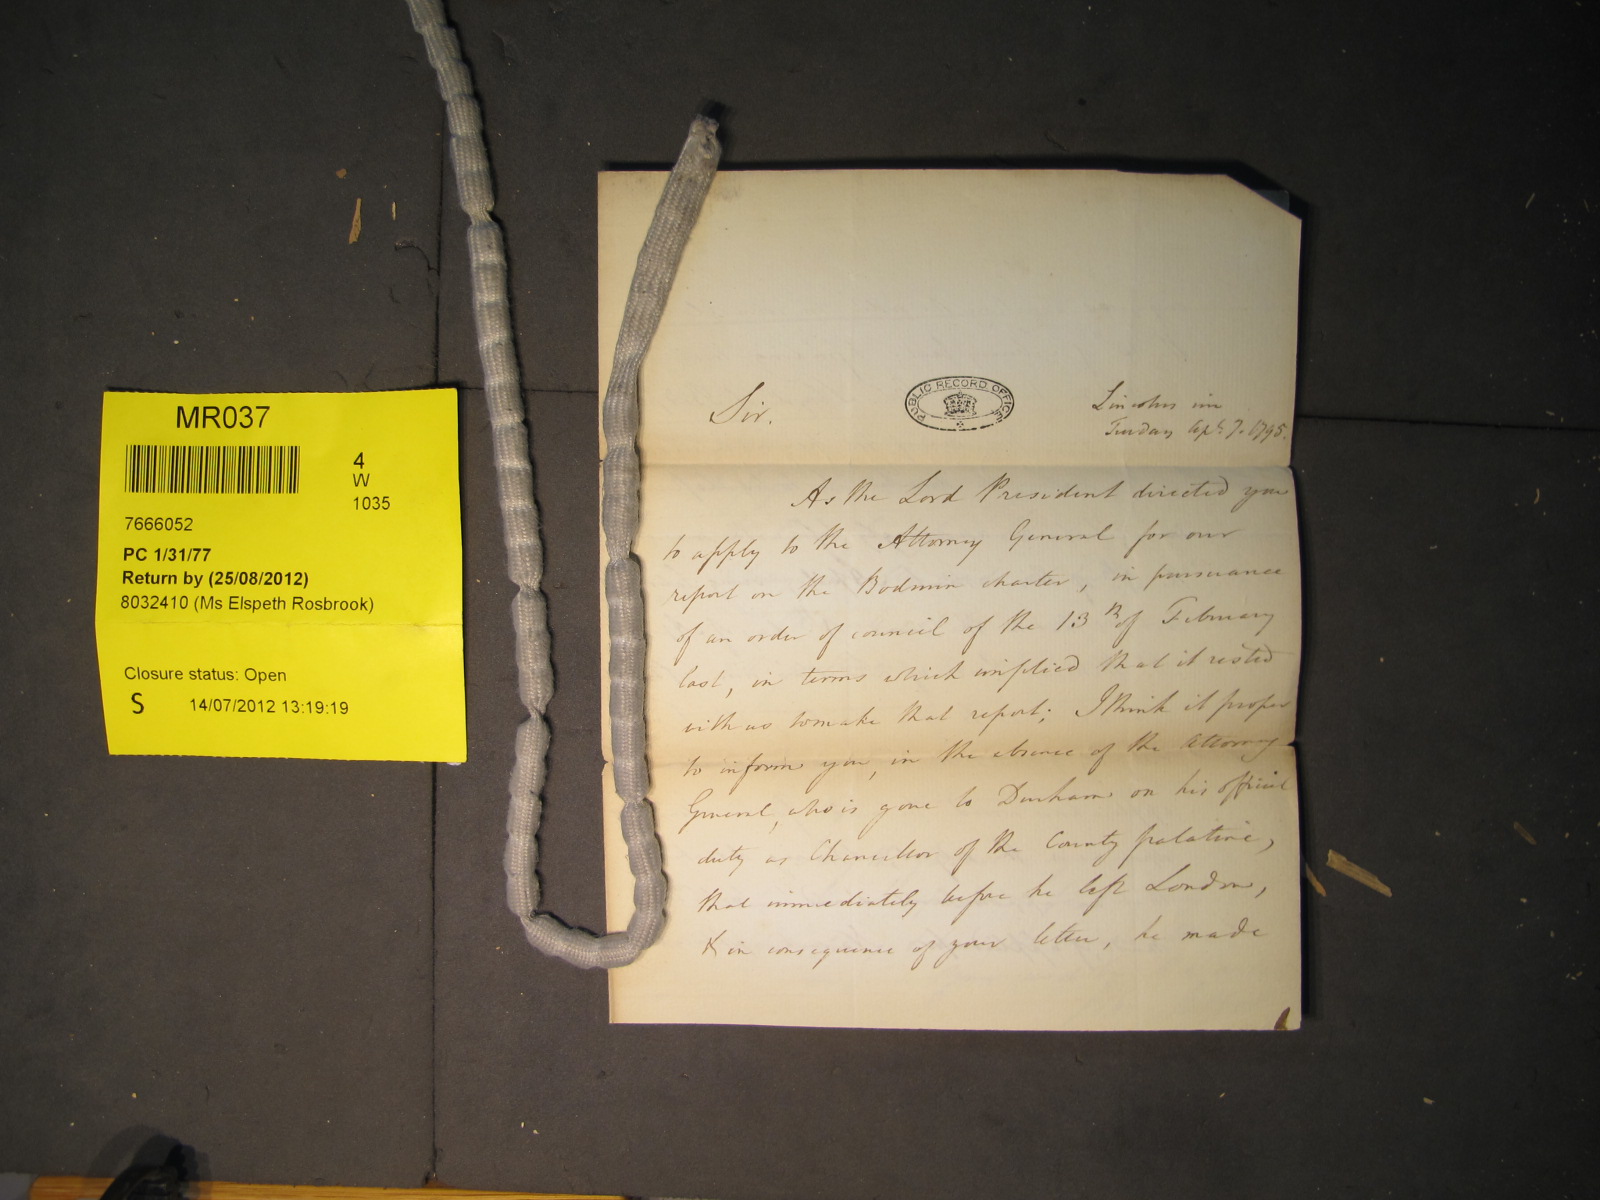 MR037
4
W
1035
7666052
PC 1/31/77
Return by (25/08/2012)
8032410 (Ms Elspeth Rosbrook)
Closure status: Open
S 14/07/2012 13:19:19
PUBLIC RECORD OFFICE
Sir.
Lincolns inn
Tuesday Apl. 7. 1795.
As the Lord President directed you
to apply to the Attorney General for our
report on the Bodmin charter, in pursuance
of an order of council of the 13th of February
last, in terms which implied that it rested
with us to make that report; I think it proper
to inform you, in the absence of the Attorney
General, who is gone to Durham on his official
duty as Chancellor of the County palatine,
that immediately before he left London,
& in consequence of your letter, he made